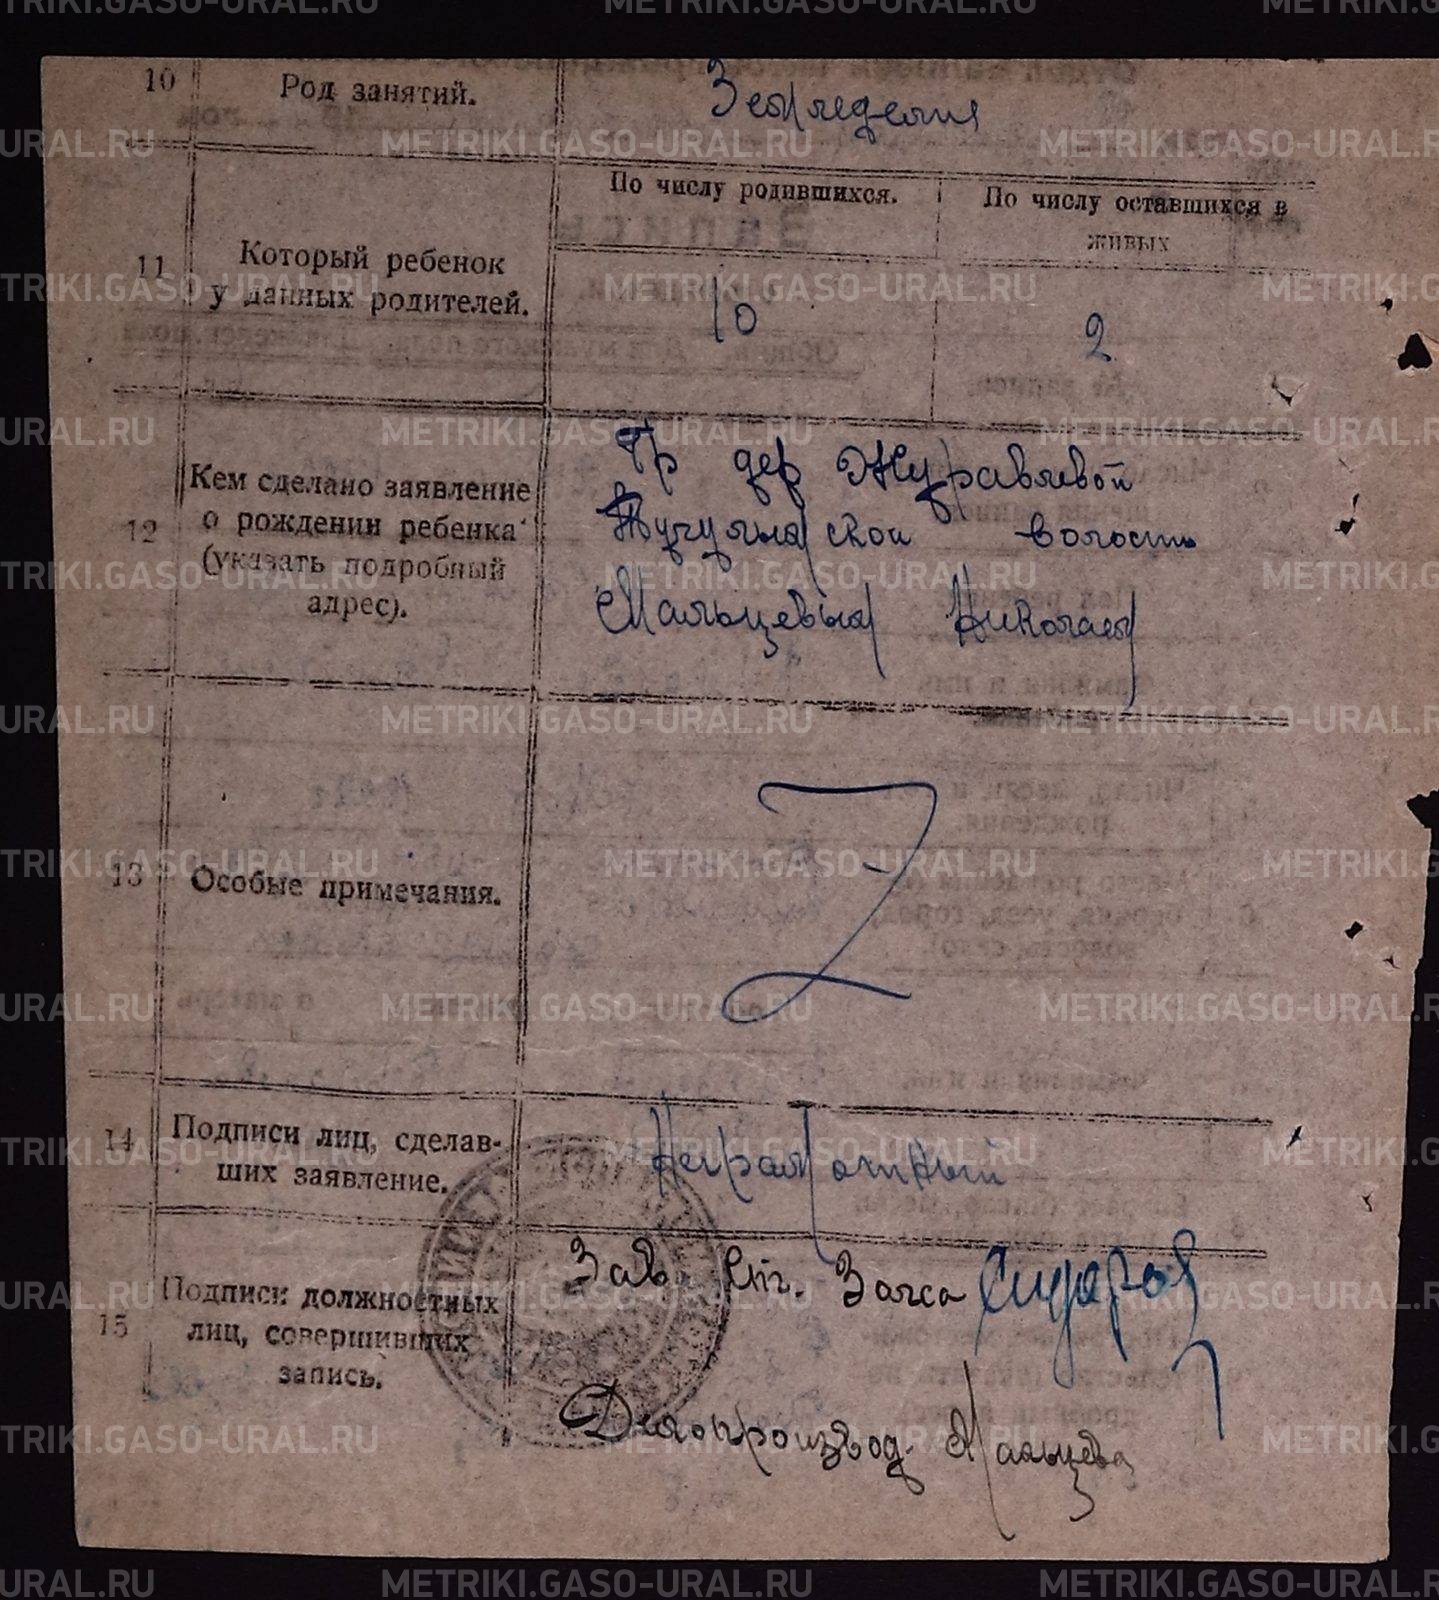 10 Род занятий. Земледелия
По числу родившихся. По числу оставшихся в живых
11 Который ребенок
у данных родителей.
10 2
12 Кем сделано заявление
о рождении ребенка
(указать подробный
адрес).
Гр дер Журавлевой
Тугулымской волости
Мальцевым Николаем
13 Особые примечания.
Z
14 Подписи лиц, сделав-
ших заявление.
Неграмотный
15 Подписи должностных
лиц, совершивших
запись.
Зав. Загса Сидоров
Делопроизвод. Мальцева
METRIKI.GASO-URAL.RU